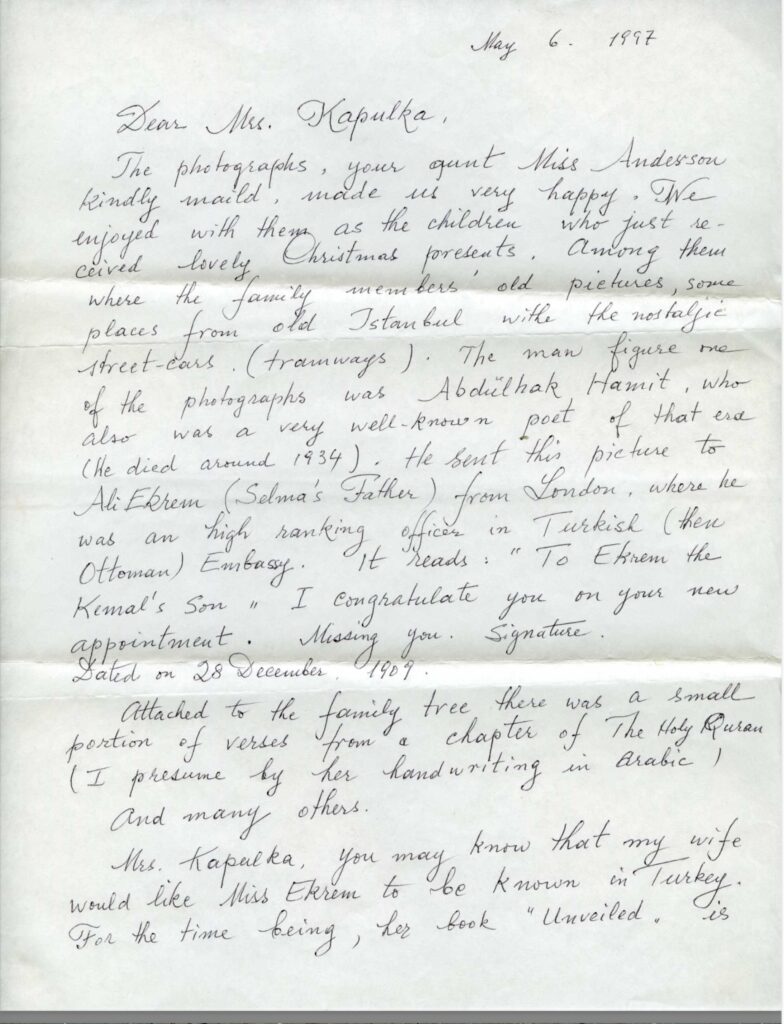 May 6. 1997
Dear Mrs. Kapulka,
The photographs, your aunt Miss Anderson
kindly maild, made us very happy. We
enjoyed with them as the children who just re-
ceived lovely Christmas presents. Among them
where the family members' old pictures, some
places from old Istanbul withe the nostaljic
street-cars. (tramways). The man figure one
of the photographs was Abdülhak Hamit, who
also was a very well-known poet of that era
(He died around 1934). He sent this picture to
Ali Ekrem (Selma's Father) from London, where he
was an high ranking officer in Turkish (then
Ottoman) Embassy. It reads: "To Ekrem the
Kemal's Son" I congratulate you on your new
appointment. Missing you. Signature.
Dated on 28 December. 1909.
Attached to the family tree there was a small
portion of verses from a chapter of The Holy Quran
(I presume by her handwriting in Arabic)
And many others.
Mrs. Kapulka, you may know that my wife
would like Miss Ekrem to be known in Turkey.
For the time being, her book "Unveiled" is